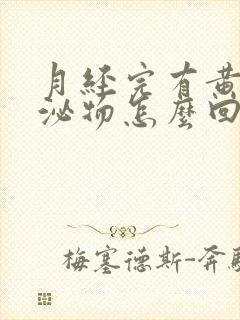 月經完有黃
泌物怎麼回
梅塞德斯-奔馳